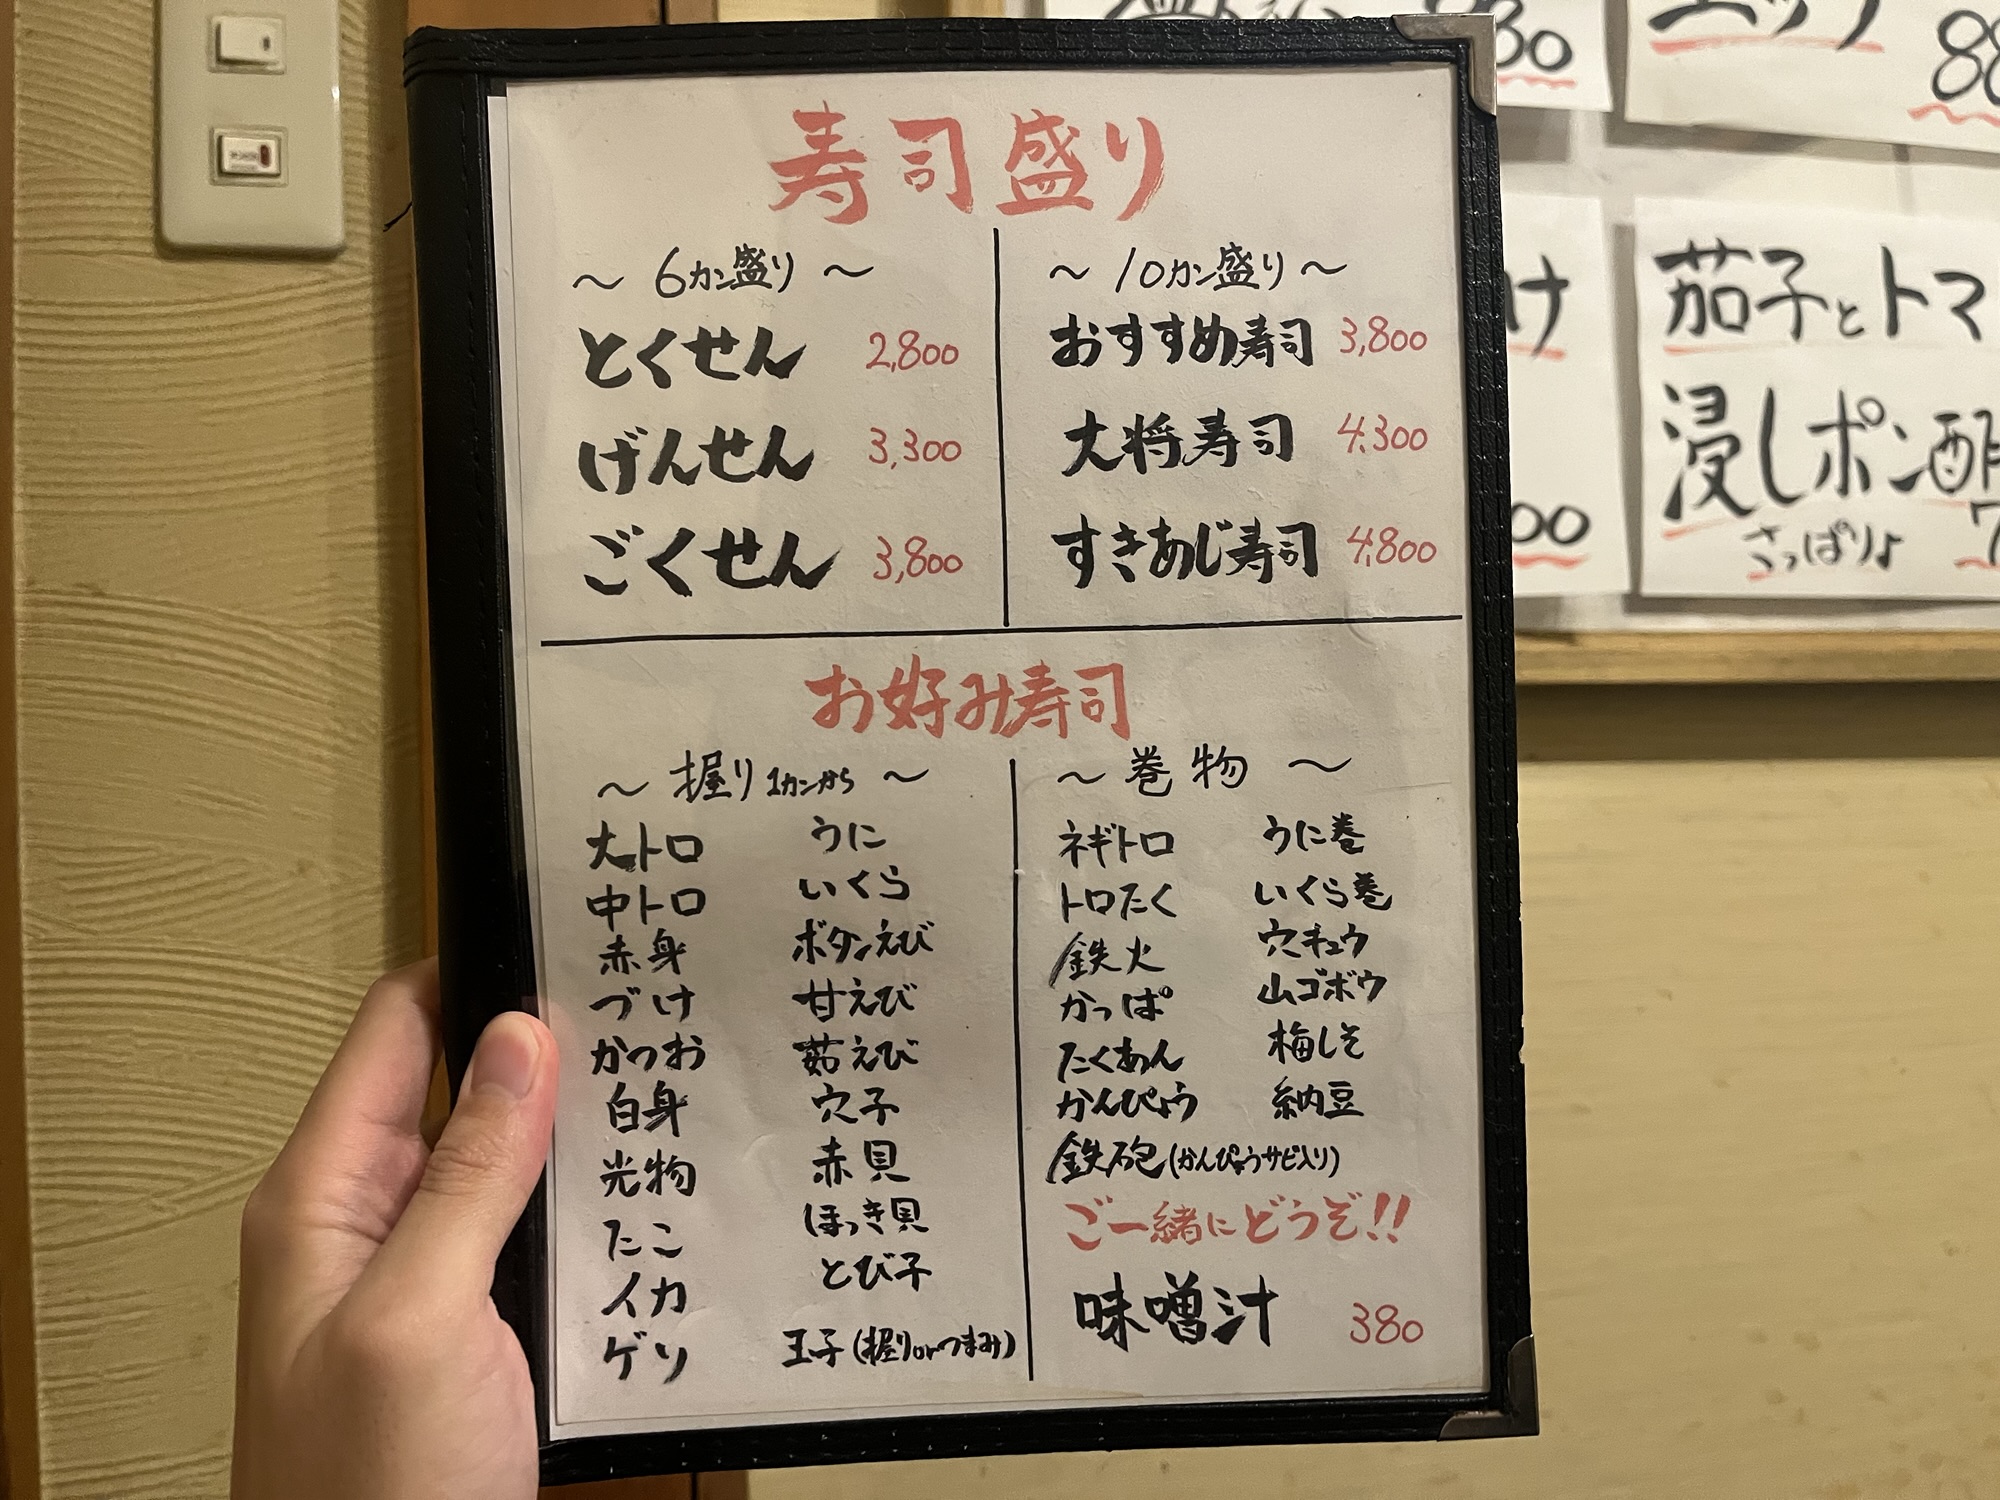 寿司盛り
〜 6カン盛り 〜
とくせん 2,800
げんせん 3,300
ごくせん 3,800
〜 10カン盛り 〜
おすすめ寿司 3,800
大将寿司 4,300
すきあじ寿司 4,800
お好み寿司
〜 握り 1カンから 〜
大トロ
中トロ
赤身
づけ
かつお
白身
光物
たこ
イカ
ゲソ
うに
いくら
ボタンえび
甘えび
茹えび
穴子
赤貝
ほっき貝
とび子
玉子(握りorつまみ)
〜 巻物 〜
ネギトロ
トロたく
鉄火
かっぱ
たくあん
かんぴょう
鉄砲(かんぴょうサビ入り)
うに巻
いくら巻
穴キュウ
山ゴボウ
梅しそ
納豆
ご一緒にどうぞ!!
味噌汁 380
茄子とトマ
浸しポン酢
さっぱり♪